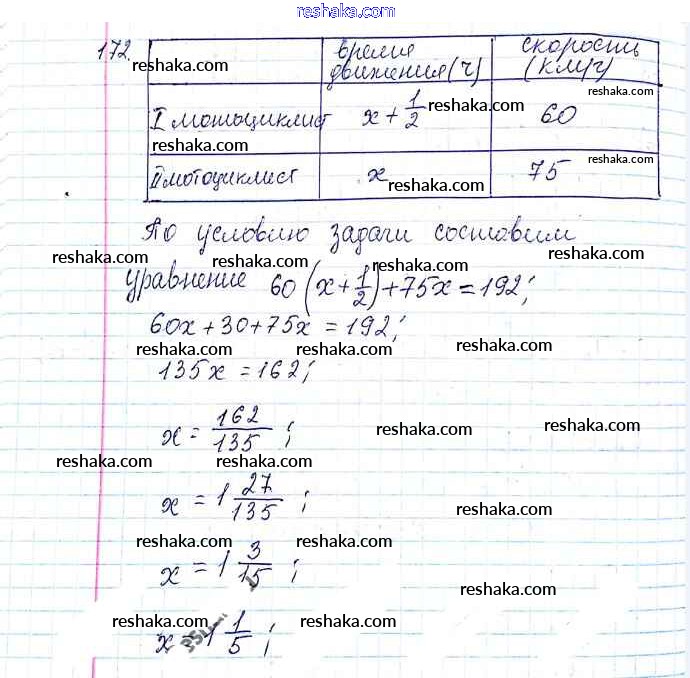 reshaka.com
reshaka.com
172.
время движения (ч)
скорость (км/ч)
reshaka.com
reshaka.com
I мотоциклист
x + 1/2
60
reshaka.com
reshaka.com
reshaka.com
II мотоциклист
x
75
reshaka.com
reshaka.com
По условию задачи составим
reshaka.com
уравнение 60(x + 1/2) + 75x = 192;
reshaka.com
60x + 30 + 75x = 192;
reshaka.com
reshaka.com
135x = 162;
reshaka.com
x = 162/135;
reshaka.com
reshaka.com
reshaka.com
x = 1 27/135;
reshaka.com
reshaka.com
reshaka.com
x = 1 3/15;
reshaka.com
reshaka.com
reshaka.com
x = 1 1/5;
reshaka.com